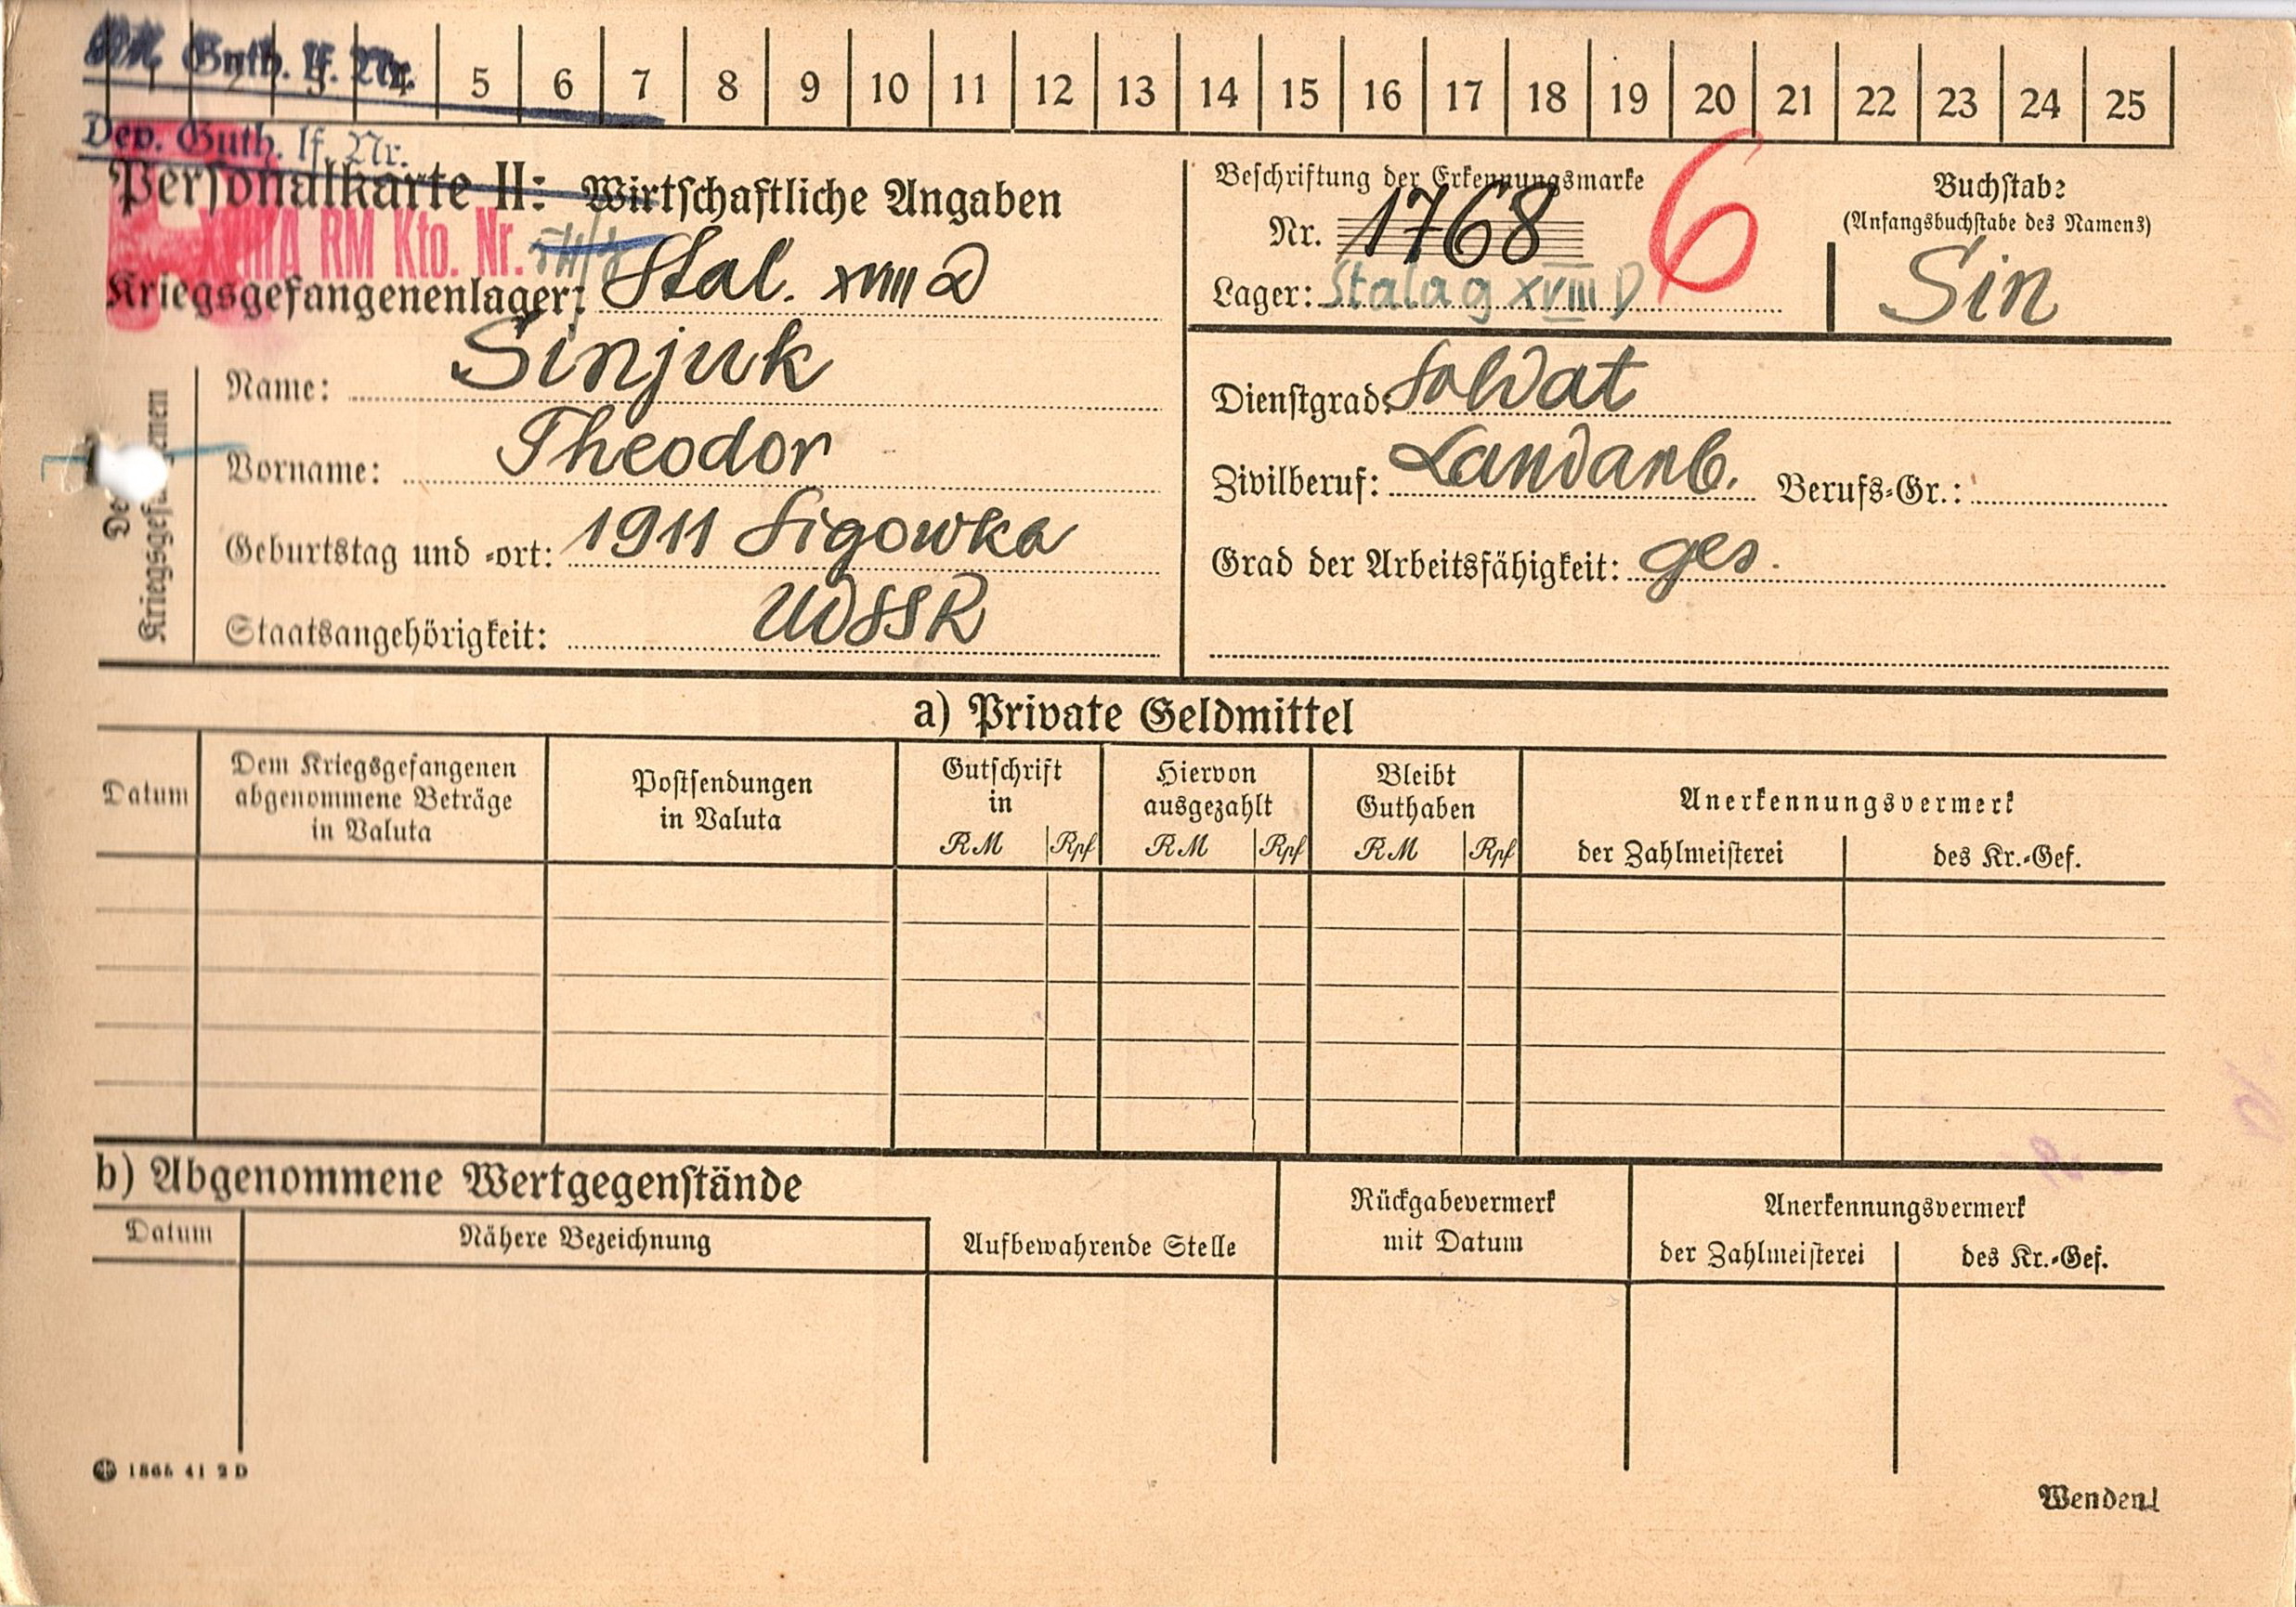 Guth. lf. Nr.
5 6 7 8 9 10 11 12 13 14 15 16 17 18 19 20 21 22 23 24 25
Dep. Guth. lf. Nr.
Personalkarte II: Wirtschaftliche Angaben
RM Kto. Nr.
Kriegsgefangenenlager: Stal. XVIII D
Beschriftung der Erkennungsmarke
Nr. 1768
6
Lager: Stalag XVIII D
Buchstabe
(Anfangsbuchstabe des Namens)
Sin
Name: Sinjuk
Vorname: Theodor
Geburtstag und -ort: 1911 Sigowka
Staatsangehörigkeit: UDSSR
Dienstgrad: Soldat
Zivilberuf: Landarb. Berufs-Gr.:
Grad der Arbeitsfähigkeit: ges.
a) Private Geldmittel
Datum
Dem Kriegsgefangenen
abgenommene Beträge
in Valuta
Postsendungen
in Valuta
Gutschrift
in
RM Rpf
Hiervon
ausgezahlt
RM Rpf
Bleibt
Guthaben
RM Rpf
Anerkennungsvermerk
der Zahlmeisterei des Kr.-Gef.
b) Abgenommene Wertgegenstände
Datum Nähere Bezeichnung
Aufbewahrende Stelle
Rückgabevermerk
mit Datum
Anerkennungsvermerk
der Zahlmeisterei des Kr.-Gef.
41 2 D
Wenden!